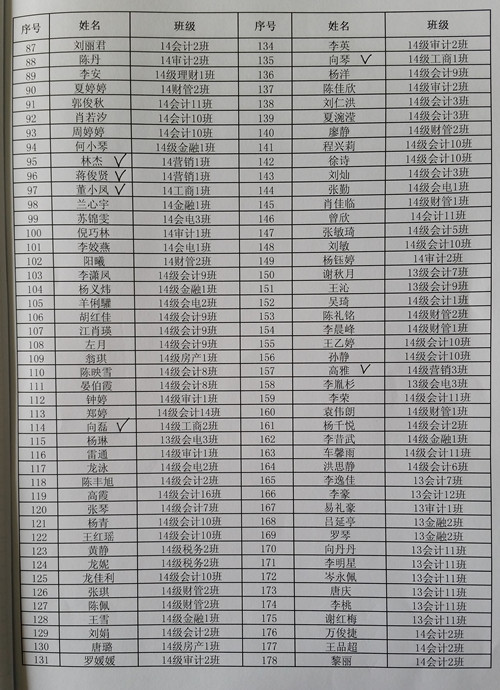 序号 姓名 班级 序号 姓名 班级
87 刘丽君 14会计2班 134 李英 14级审计2班
88 陈丹 14审计2班 135 向琴 14级工商1班
89 李安 14级理财1班 136 杨洋 14级会计9班
90 夏婷婷 14财管2班 137 陈佳欣 14级审计2班
91 郭俊秋 14会计11班 138 刘仁洪 14级会计3班
92 肖若汐 14会计10班 139 夏涴滢 14级会计3班
93 周婷婷 14会计10班 140 廖静 14级财管2班
94 何小琴 14级金融1班 141 程兴莉 14级会计10班
95 林杰 14营销1班 142 徐诗 14级会计10班
96 蒋俊贤 14营销1班 143 刘灿 14级会计3班
97 董小凤 14工商1班 144 张勤 14级会电1班
98 兰心宇 14金融1班 145 肖佳临 14级财管1班
99 苏锦雯 14会电3班 146 曾欣 14会计11班
100 倪巧林 14审计1班 147 张敏琦 14级会计5班
101 李姣燕 14会电1班 148 刘敏 14级会计10班
102 阳曦 14财管2班 149 杨钰婷 14审计2班
103 李潇凤 14级会计9班 150 谢秋月 13级会计7班
104 杨义炜 14级金融1班 151 王沁 13级会计9班
105 羊俐驩 14级会电2班 152 吴琦 14级会计1班
106 胡红佳 14级会计9班 153 陈礼铭 14级财管2班
107 江肖瑛 14级会计9班 154 李晨峰 14级财管1班
108 左月 14级会计9班 155 王乙婷 14级会计10班
109 翁琪 14级房产1班 156 孙静 14级会计10班
110 陈映雪 14级会计8班 157 高雅 14级营销3班
111 晏伯霞 14级会计8班 158 李胤杉 13级会电3班
112 钟婷 14级审计1班 159 李荣 14级会计11班
113 郑婷 14级会计14班 160 袁伟朗 14级财管1班
114 向磊 14级工商2班 161 杨千悦 14级会计2班
115 杨琳 13级会电3班 162 李昔武 14级金融1班
116 雷通 14级审计1班 163 车馨雨 14级会计11班
117 龙泳 14级会电2班 164 洪思静 14级会计6班
118 陈丰旭 14级会计2班 165 李逸佳 13会计7班
119 高霞 14级会计16班 166 李豪 13会计12班
120 张琴 14级会计7班 167 易礼豪 13审计1班
121 杨青 14级会计10班 168 吕延亭 13金融2班
122 王红瑶 14级会计10班 169 罗琴 13金融2班
123 黄静 14级税务2班 170 向丹丹 13会计11班
124 龙妮 14级税务2班 171 李明星 13会计11班
125 龙佳利 14级会计10班 172 岑永佩 13会计11班
126 张琪 14级财管2班 173 唐庆 13会计11班
127 陈佩 14级财管2班 174 李桃 13会计11班
128 王雪 14级金融1班 175 谢红梅 13会计11班
129 刘娟 14级会计2班 176 万俊捷 14会计2班
130 唐璐 14级房产1班 177 王品超 14级会计2班
131 罗媛媛 14级审计2班 178 黎丽 14级会计2班